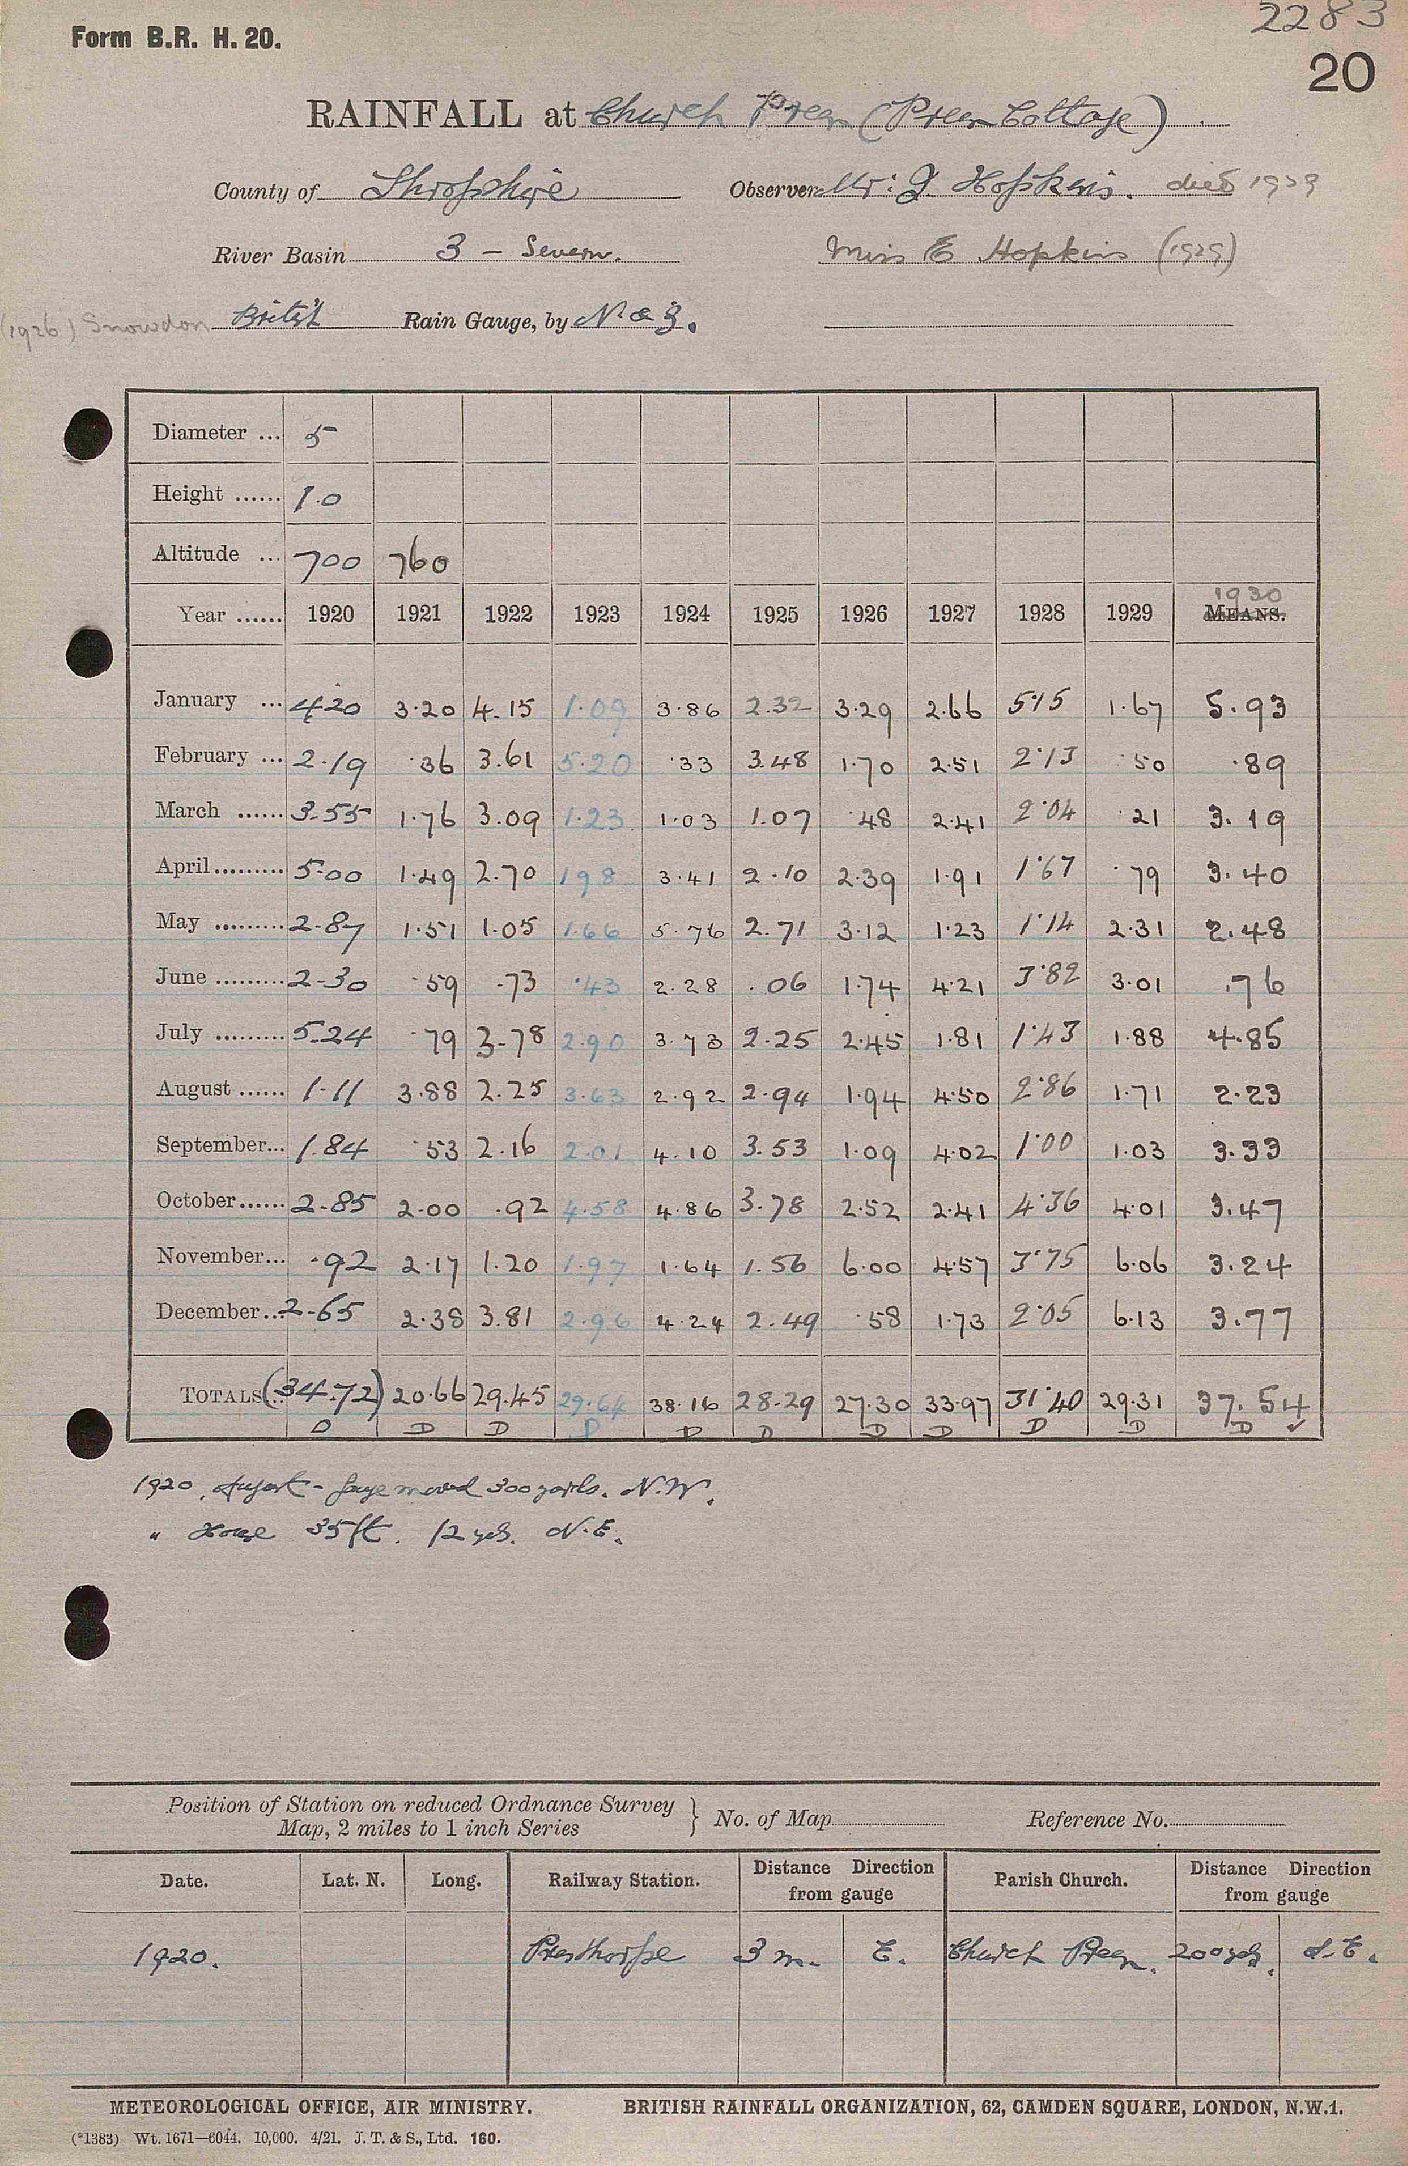 2283
Form B.R. H. 20.
20
RAINFALL at Church Preen (Preen Cottage)
County of Shropshire Observer Mr. J Hopkins. died 1929
River Basin 3 - Severn. Miss E Hopkins (1929)
(1926) Snowdon British Rain Gauge, by N & Z.
Diameter ... 5
Height ...... 1.0
Altitude ... 700 760
1930
Year ...... 1920 1921 1922 1923 1924 1925 1926 1927 1928 1929 MEANS.
January ... 4.20 3.20 4.15 1.09 3.86 2.32 3.29 2.66 5.15 1.67 5.93
February ... 2.19 .36 3.61 5.20 .33 3.48 1.70 2.51 2.13 .50 .89
March ...... 3.55 1.76 3.09 1.23 1.03 1.07 .48 2.41 2.04 .21 3.19
April......... 5.00 1.49 2.70 1.98 3.41 2.10 2.39 1.91 1.67 .79 3.40
May ......... 2.87 1.51 1.05 1.66 5.76 2.71 3.12 1.23 1.14 2.31 2.48
June ......... 2.30 .59 .73 .43 2.28 .06 1.74 4.21 3.82 3.01 .76
July ......... 5.24 .79 3.78 2.90 3.73 2.25 2.45 1.81 1.43 1.88 4.85
August ...... 1.11 3.88 2.25 3.63 2.92 2.94 1.94 4.50 2.86 1.71 2.23
September... 1.84 .53 2.16 2.01 4.10 3.53 1.09 4.02 1.00 1.03 3.33
October...... 2.85 2.00 .92 4.58 4.86 3.78 2.52 2.41 4.36 4.01 3.47
November... .92 2.17 1.20 1.97 1.64 1.56 6.00 4.57 3.75 6.06 3.24
December... 2.65 2.38 3.81 2.96 4.24 2.49 .58 1.73 2.05 6.13 3.77
TOTALS... (34.72) 20.66 29.45 29.64 38.16 28.29 27.30 33.97 31.40 29.31 37.54
D D D D D D D D D D D ✓
1920. August - gauge moved 300 yards. N.W.
" House 35ft. 12 yds. N.E.
Position of Station on reduced Ordnance Survey
Map, 2 miles to 1 inch Series } No. of Map Reference No.
Date. Lat. N. Long. Railway Station. Distance Direction from gauge Parish Church. Distance Direction from gauge
1920. Presthorpe 3 m. E. Church Preen. 200 yds. S.E.
METEOROLOGICAL OFFICE, AIR MINISTRY. BRITISH RAINFALL ORGANIZATION, 62, CAMDEN SQUARE, LONDON, N.W.1.
(*1383) Wt. 1671—6044. 10,000. 4/21. J. T. & S., Ltd. 160.